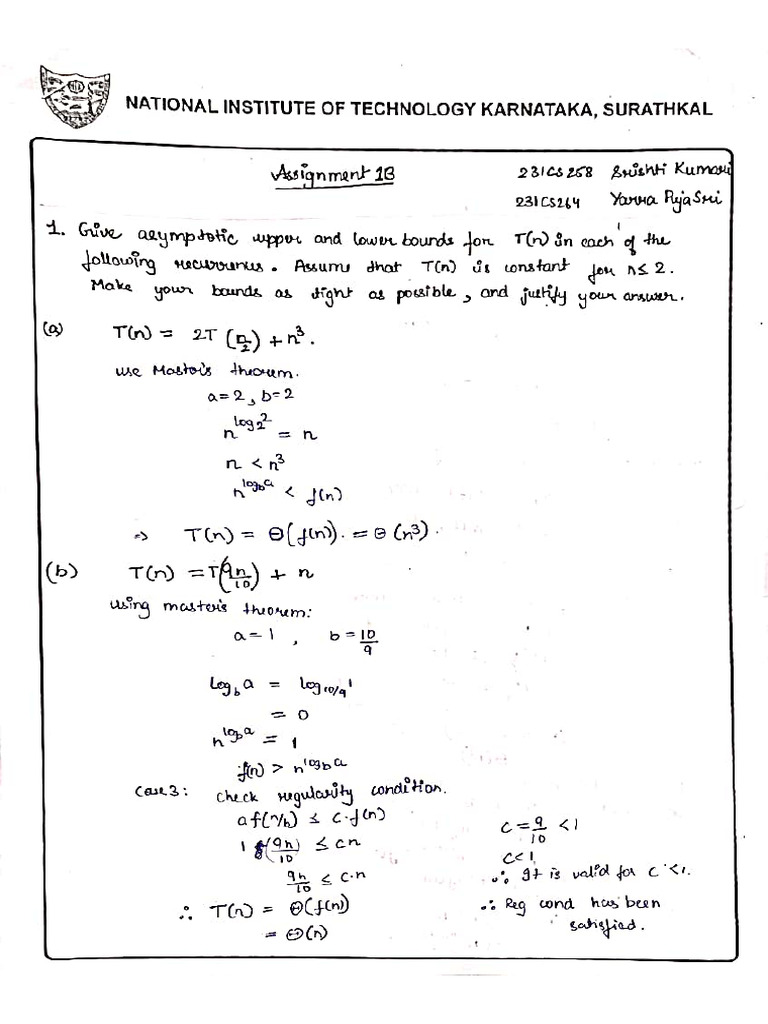 NATIONAL INSTITUTE OF TECHNOLOGY KARNATAKA, SURATHKAL
Assignment 1B
231CS258 Srishti Kumari
231CS264 Yarra PujaSri
1. Give asymptotic upper and lower bounds for T(n) in each of the
following recurrences. Assume that T(n) is constant for n≤2.
Make your bounds as tight as possible, and justify your answer.
(a) T(n) = 2T(n/2) + n³.
use Master's theorem.
a=2, b=2
n^log₂2 = n
n < n³
n^log_b a < f(n)
⇒ T(n) = Θ(f(n)). = Θ(n³).
(b) T(n) = T(9n/10) + n
using master's theorem:
a=1, b=10/9
log_b a = log_10/9 1
= 0
n^log_b a = 1
f(n) > n^log_b a
Case 3: Check regularity condition.
af(n/b) ≤ c·f(n)
1 f(9n/10) ≤ cn
9n/10 ≤ c·n
∴ T(n) = Θ(f(n))
= Θ(n)
c = 9/10 < 1
c<1
∴ It is valid for c<1.
∴ Reg cond has been
satisfied.